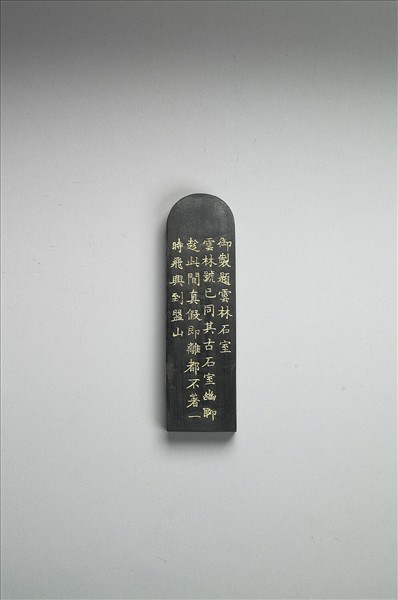 御製題雲林石室
雲林號已同其古石室幽聊
趁此間真假即離都不著一
時飛興到盤山